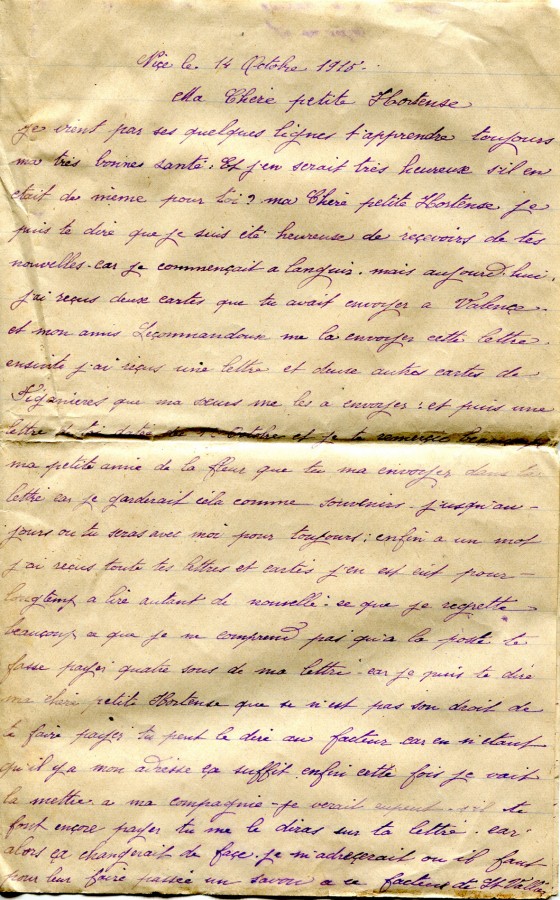 Nice le 14 Octobre 1915.
Ma Chère petite Hortense
Je vient par ses quelques lignes t'apprendre toujours
ma très bonnes santé. Et j'en serait très heureuse s'il en
était de même pour toi? ma Chère petite Hortense je
puis te dire que je suis été heureuse de reçevoirs de tes
nouvelles. car je commençait a languir. mais aujourd'hui.
j'ai reçus deux cartes que tu avait envoyer a Valence.
et mon amis Lecommandoux me la envoyer cette lettre.
ensuite j'ai reçus une lettre et deux autres cartes de
Figanières que ma sœurs me les a envoyer: et puis une
lettre de toi datée du Octobre et je te remerçie
ma petite amie de la fleur que tu ma envoyer dans ta
lettre car je garderait cela comme souvenirs jusqu'au
jours ou tu seras avec moi pour toujours: enfin a un mot
j'ai reçus toute tes lettres et cartes j'en est eut pour
longtemp a lire autant de nouvelle. se que je regrette
beaucoup a que je ne comprend pas qu'a la poste te
fasse payer quatre sous de ma lettre. car je puis te dire
ma chère petite Hortense que se n'est pas son droit de
te faire payer tu peut le dire au facteur car en n'étant
qu'il y a mon adresse ça suffit enfin cette fois je vait
la mettre a ma compagnie je verait s'il te
font encore payer tu me le diras sur ta lettre. car
alors ça changerait de façe. je m'adreçerait ou il faut
pour leur faire passée un savon a ce facteur de St Vallier